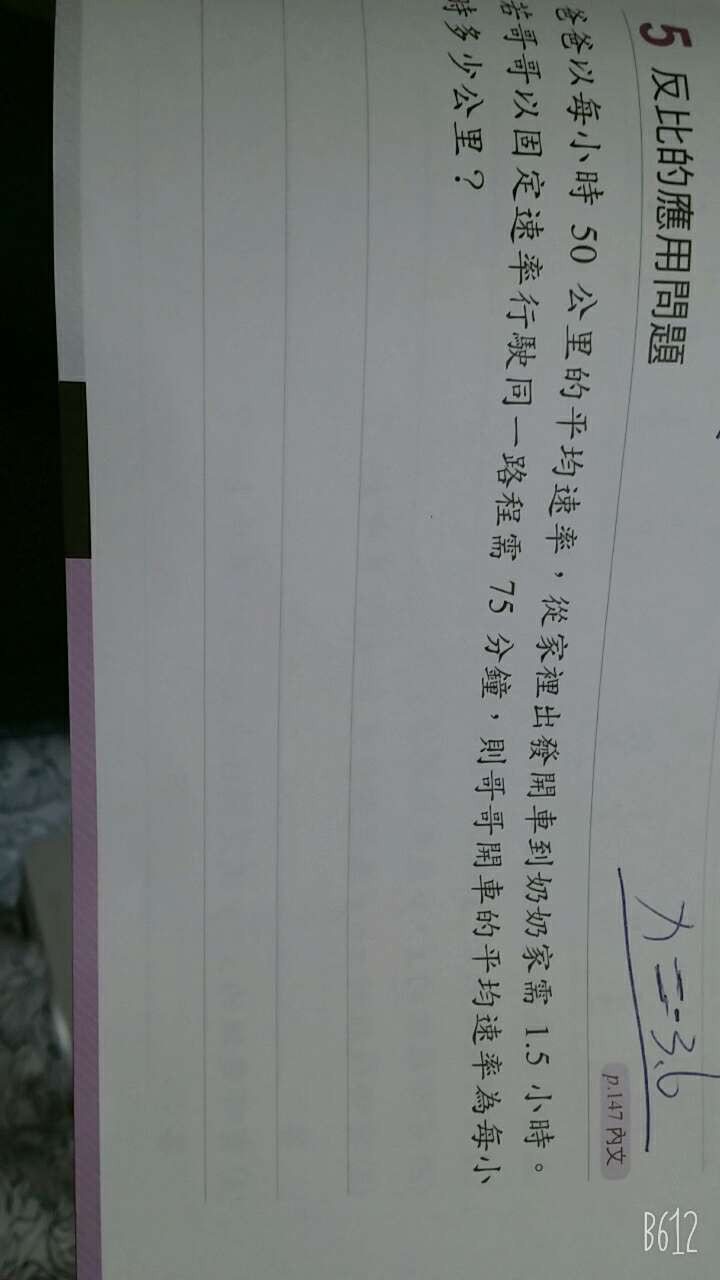 x=-3.6
5 反比的應用問題
p.147 內文
爸爸以每小時 50 公里的平均速率，從家裡出發開車到奶奶家需 1.5 小時。
若哥哥以固定速率行駛同一路程需 75 分鐘，則哥哥開車的平均速率為每小
時多少公里？
B612